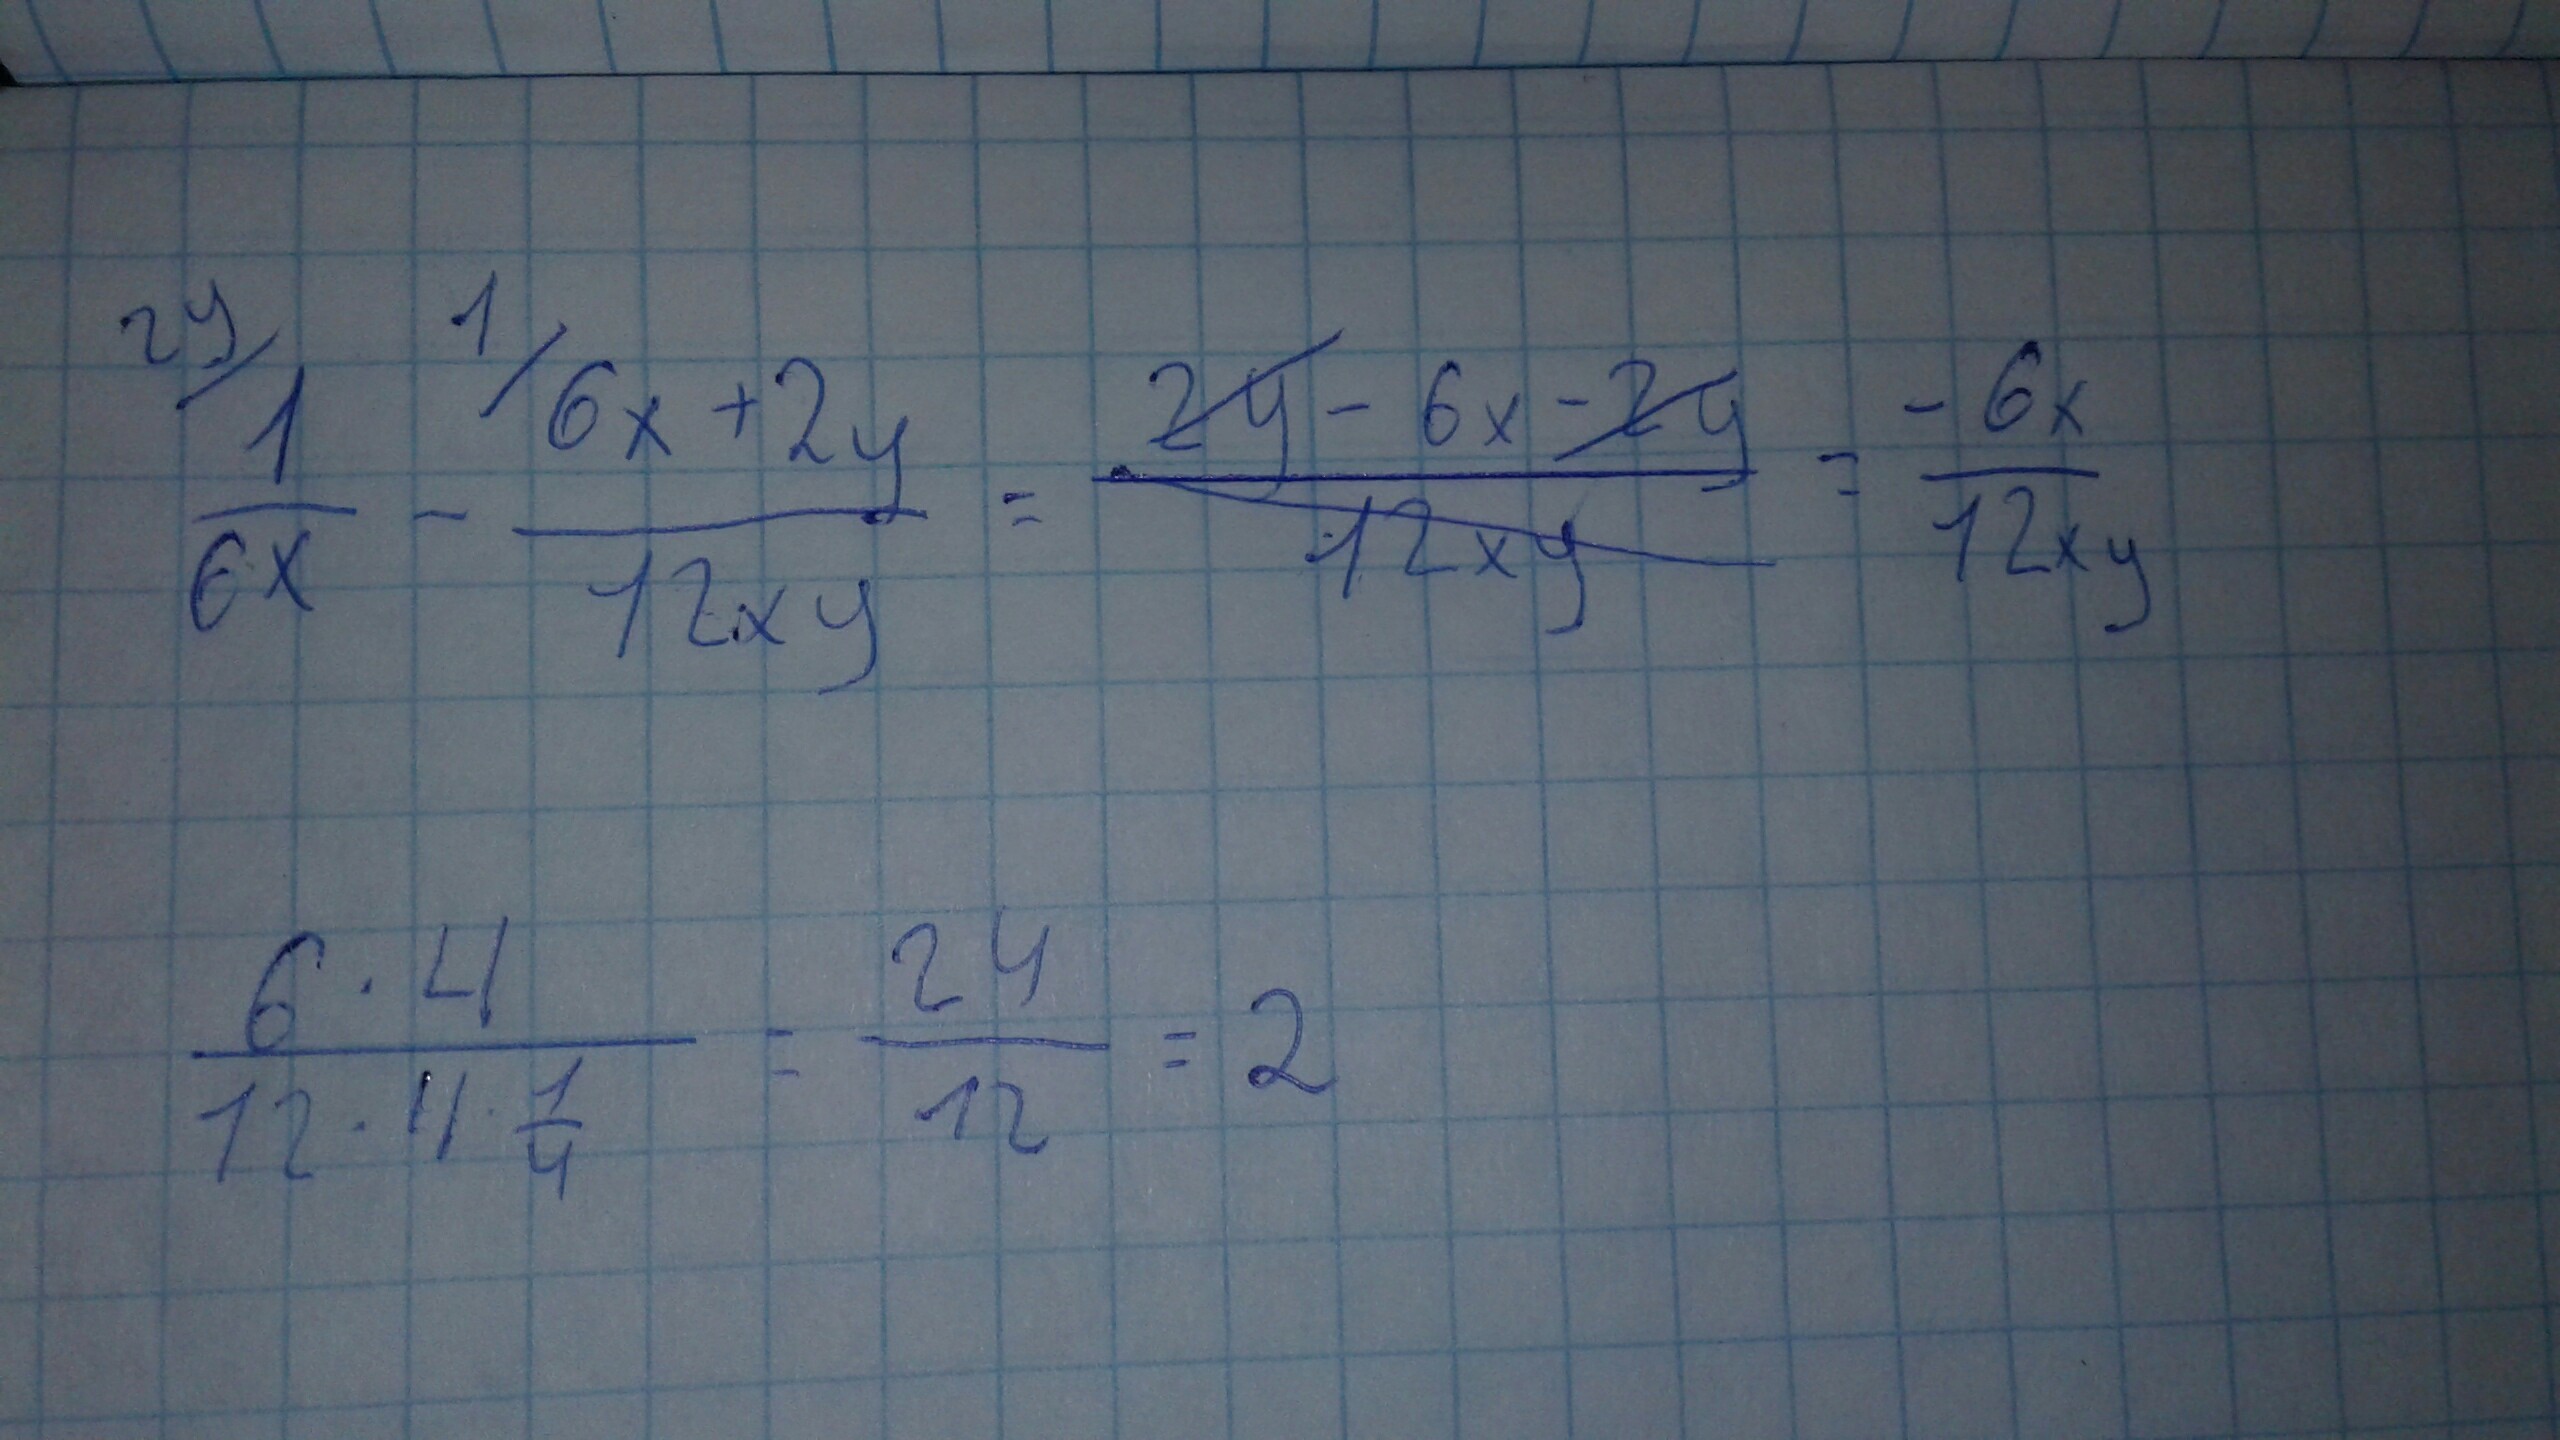 2y/ 1/
1/6x - (6x+2y)/12xy = (2y - 6x - 2y)/12xy = -6x/12xy
(6·4)/(12·4·1/4) = 24/12 = 2